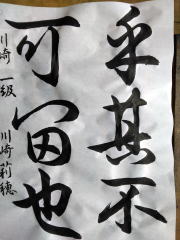 乎其不
可冨也
川崎 一級 川崎莉穂